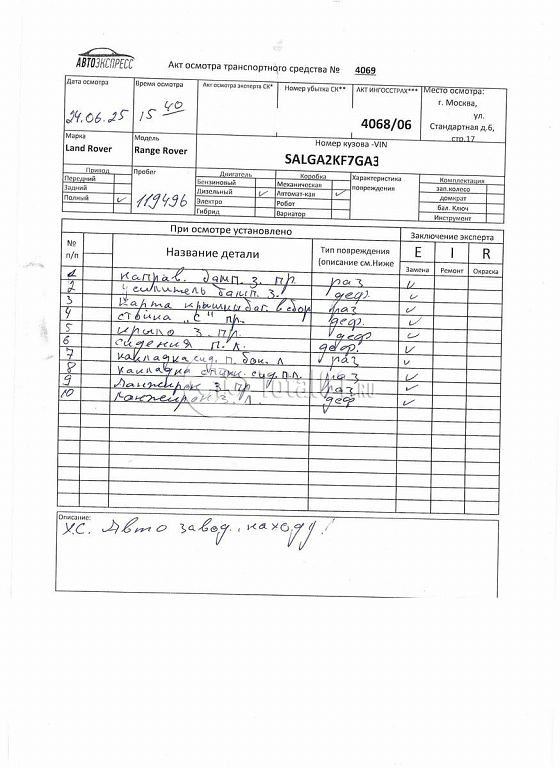 АВТОЭКСПРЕСС
Акт осмотра транспортного средства № 4069
Дата осмотра Время осмотра Акт осмотра эксперта СК* Номер убытка СК** АКТ ИНГОССТРАХ*** Место осмотра:
24.06.25 15 40 4068/06 г. Москва,
ул.
Стандартная д.6,
стр.17
Марка Модель Номер кузова -VIN
Land Rover Range Rover SALGA2KF7GA3
Привод Пробег Двигатель Коробка Характеристика повреждения Комплектация
Передний Бензиновый Механическая зап.колесо
Задний Дизельный ✓ Автомат-кая ✓ домкрат
Полный ✓ 119496 Электро Робот бал. Ключ
Гибрид Вариатор Инструмент
При осмотре установлено Заключение эксперта
№ п/п Название детали Тип повреждения (описание см.Ниже E I R
Замена Ремонт Окраска
1 направ. бамп. з. пр. раз ✓
2 усилитель бамп. з. деф. ✓
3 Карта крышки баг. в сбор раз ✓
4 стойка "С" пр. деф. ✓
5 крыло з. пр. деф ✓
6 сидения п. л. деф. ✓
7 накладка сид. п. бок. л раз ✓
8 накладка спинк. сид. п. л. раз ✓
9 Лонжерон з. пр раз ✓
10 Лонжерон з. л. деф ✓
Total01.RU
Описание:
Х.С. Авто завод. находу!